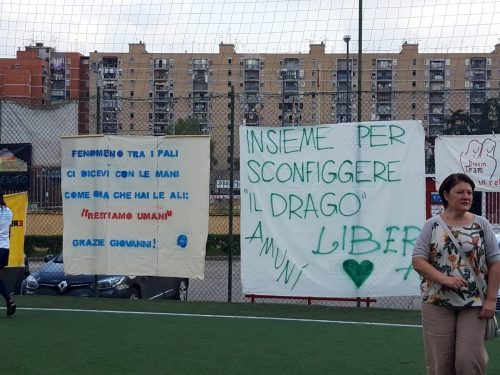 FENOMENO TRA I PALI
CI DICEVI CON LE MANI
COME ORA CHE HAI LE ALI:
"RESTIAMO UMANI"
GRAZIE GIOVANNI!
INSIEME PER
SCONFIGGERE
"IL DRAGO"
AMUNÌ
LIBER
Dream
Team
in re